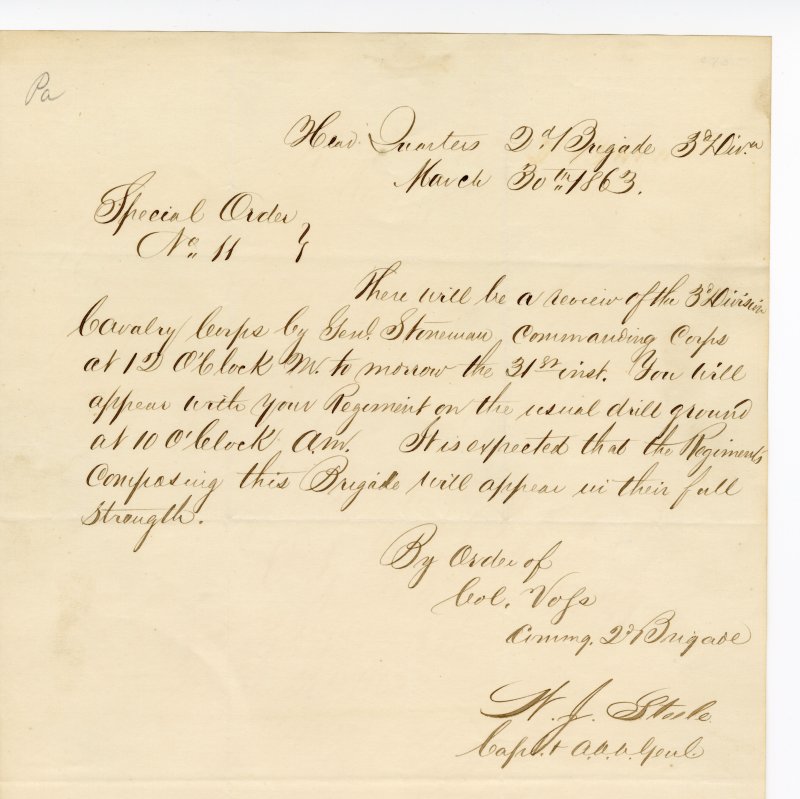 Pa
Head Quarters 2d Brigade 3d Divn
March 30th 1863.
Special Order
No 11
There will be a review of the 3d Division
Cavalry Corps by Genl. Stoneman, Commanding Corps
at 12 O'Clock M. to morrow the 31st inst. You will
appear with your Regiment on the usual drill ground
at 10 O'Clock A.M. It is expected that the Regiments
Composing this Brigade will appear in their full
Strength.
By Order of
Col. Voss
Commg. 2d Brigade
J. Steele
Capt. & A.A.A. Genl.